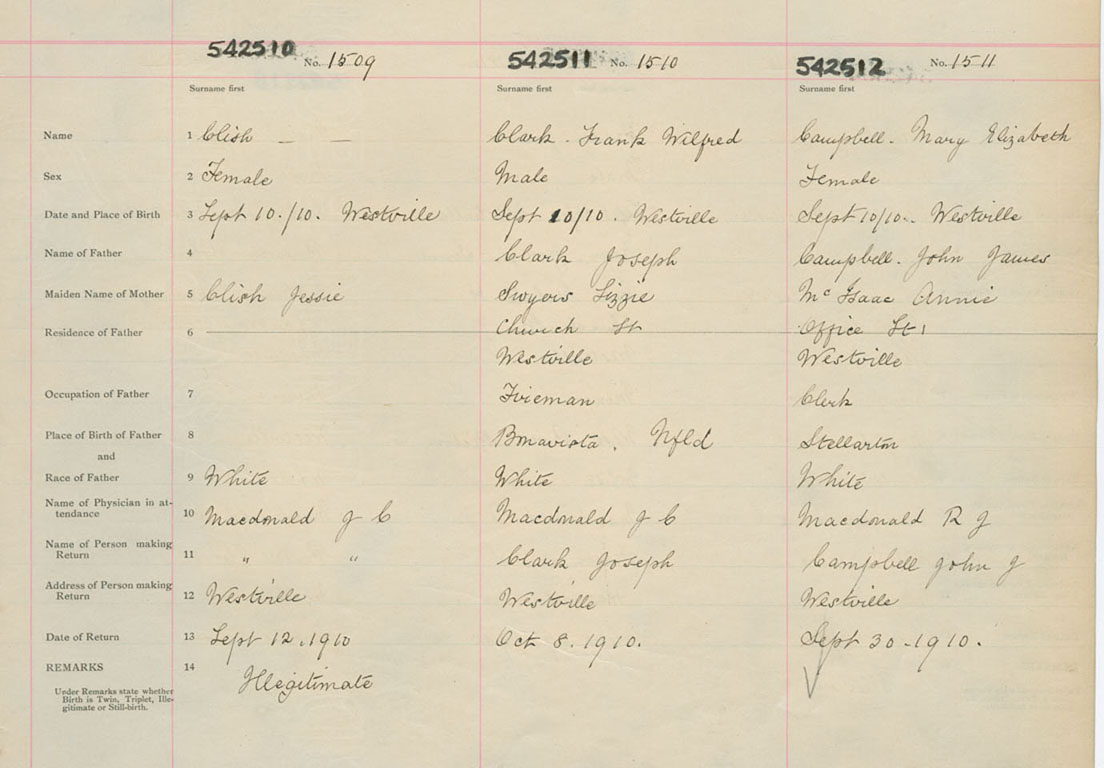 542510 No. 1509 542511 No. 1510 542512 No. 1511
Surname first Surname first Surname first
Name 1 Clish — — Clark. Frank Wilfred Campbell. Mary Elizabeth
Sex 2 Female Male Female
Date and Place of Birth 3 Sept 10./10. Westville Sept 10/10. Westville Sept 10/10. Westville
Name of Father 4 Clark Joseph Campbell. John James
Maiden Name of Mother 5 Clish Jessie Swyers Lizzie McIsaac Annie
Residence of Father 6 Church St Office St
Westville Westville
Occupation of Father 7 Fireman Clerk
Place of Birth of Father 8 Bonavista. Nfld Stellarton
and
Race of Father 9 White White White
Name of Physician in at-
tendance 10 Macdonald J C Macdonald J C Macdonald R J
Name of Person making
Return 11 " " Clark Joseph Campbell John J
Address of Person making
Return 12 Westville Westville Westville
Date of Return 13 Sept 12. 1910 Oct 8. 1910. Sept 30 - 1910.
REMARKS 14 Illegitimate
Under Remarks state whether
Birth is Twin, Triplet, Ille-
gitimate or Still-birth.